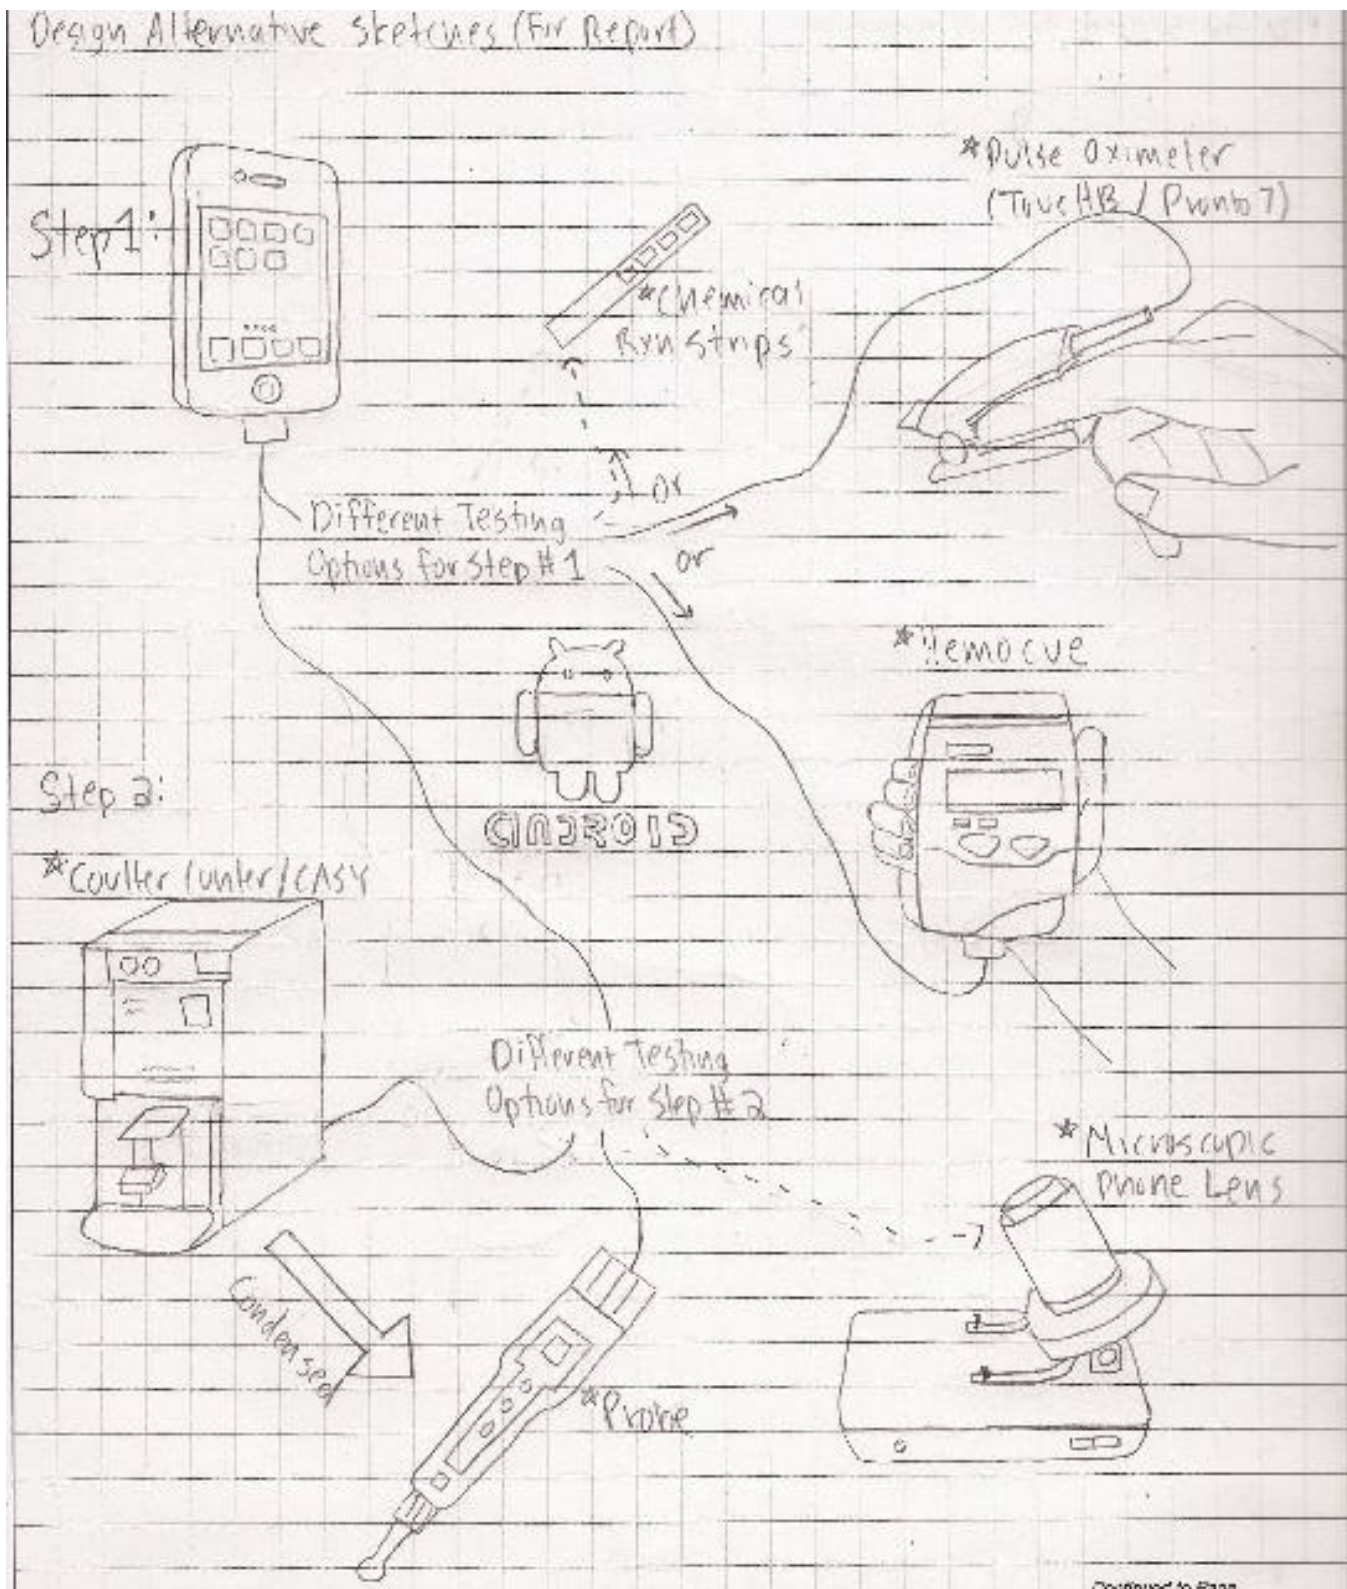 Design Alternative Sketches (For Report)
*Pulse Oximeter
(Touch HB / Pronto 7)
Step 1:
*Chemical
Rxn Strips
or
Different Testing
Options for Step #1
or
*Hemocue
ANDROID
Step 2:
*Coulter Counter/CASY
Different Testing
Options for Step #2
*Microscopic
Phone Lens
Condensed
*Probe
Continued to Page